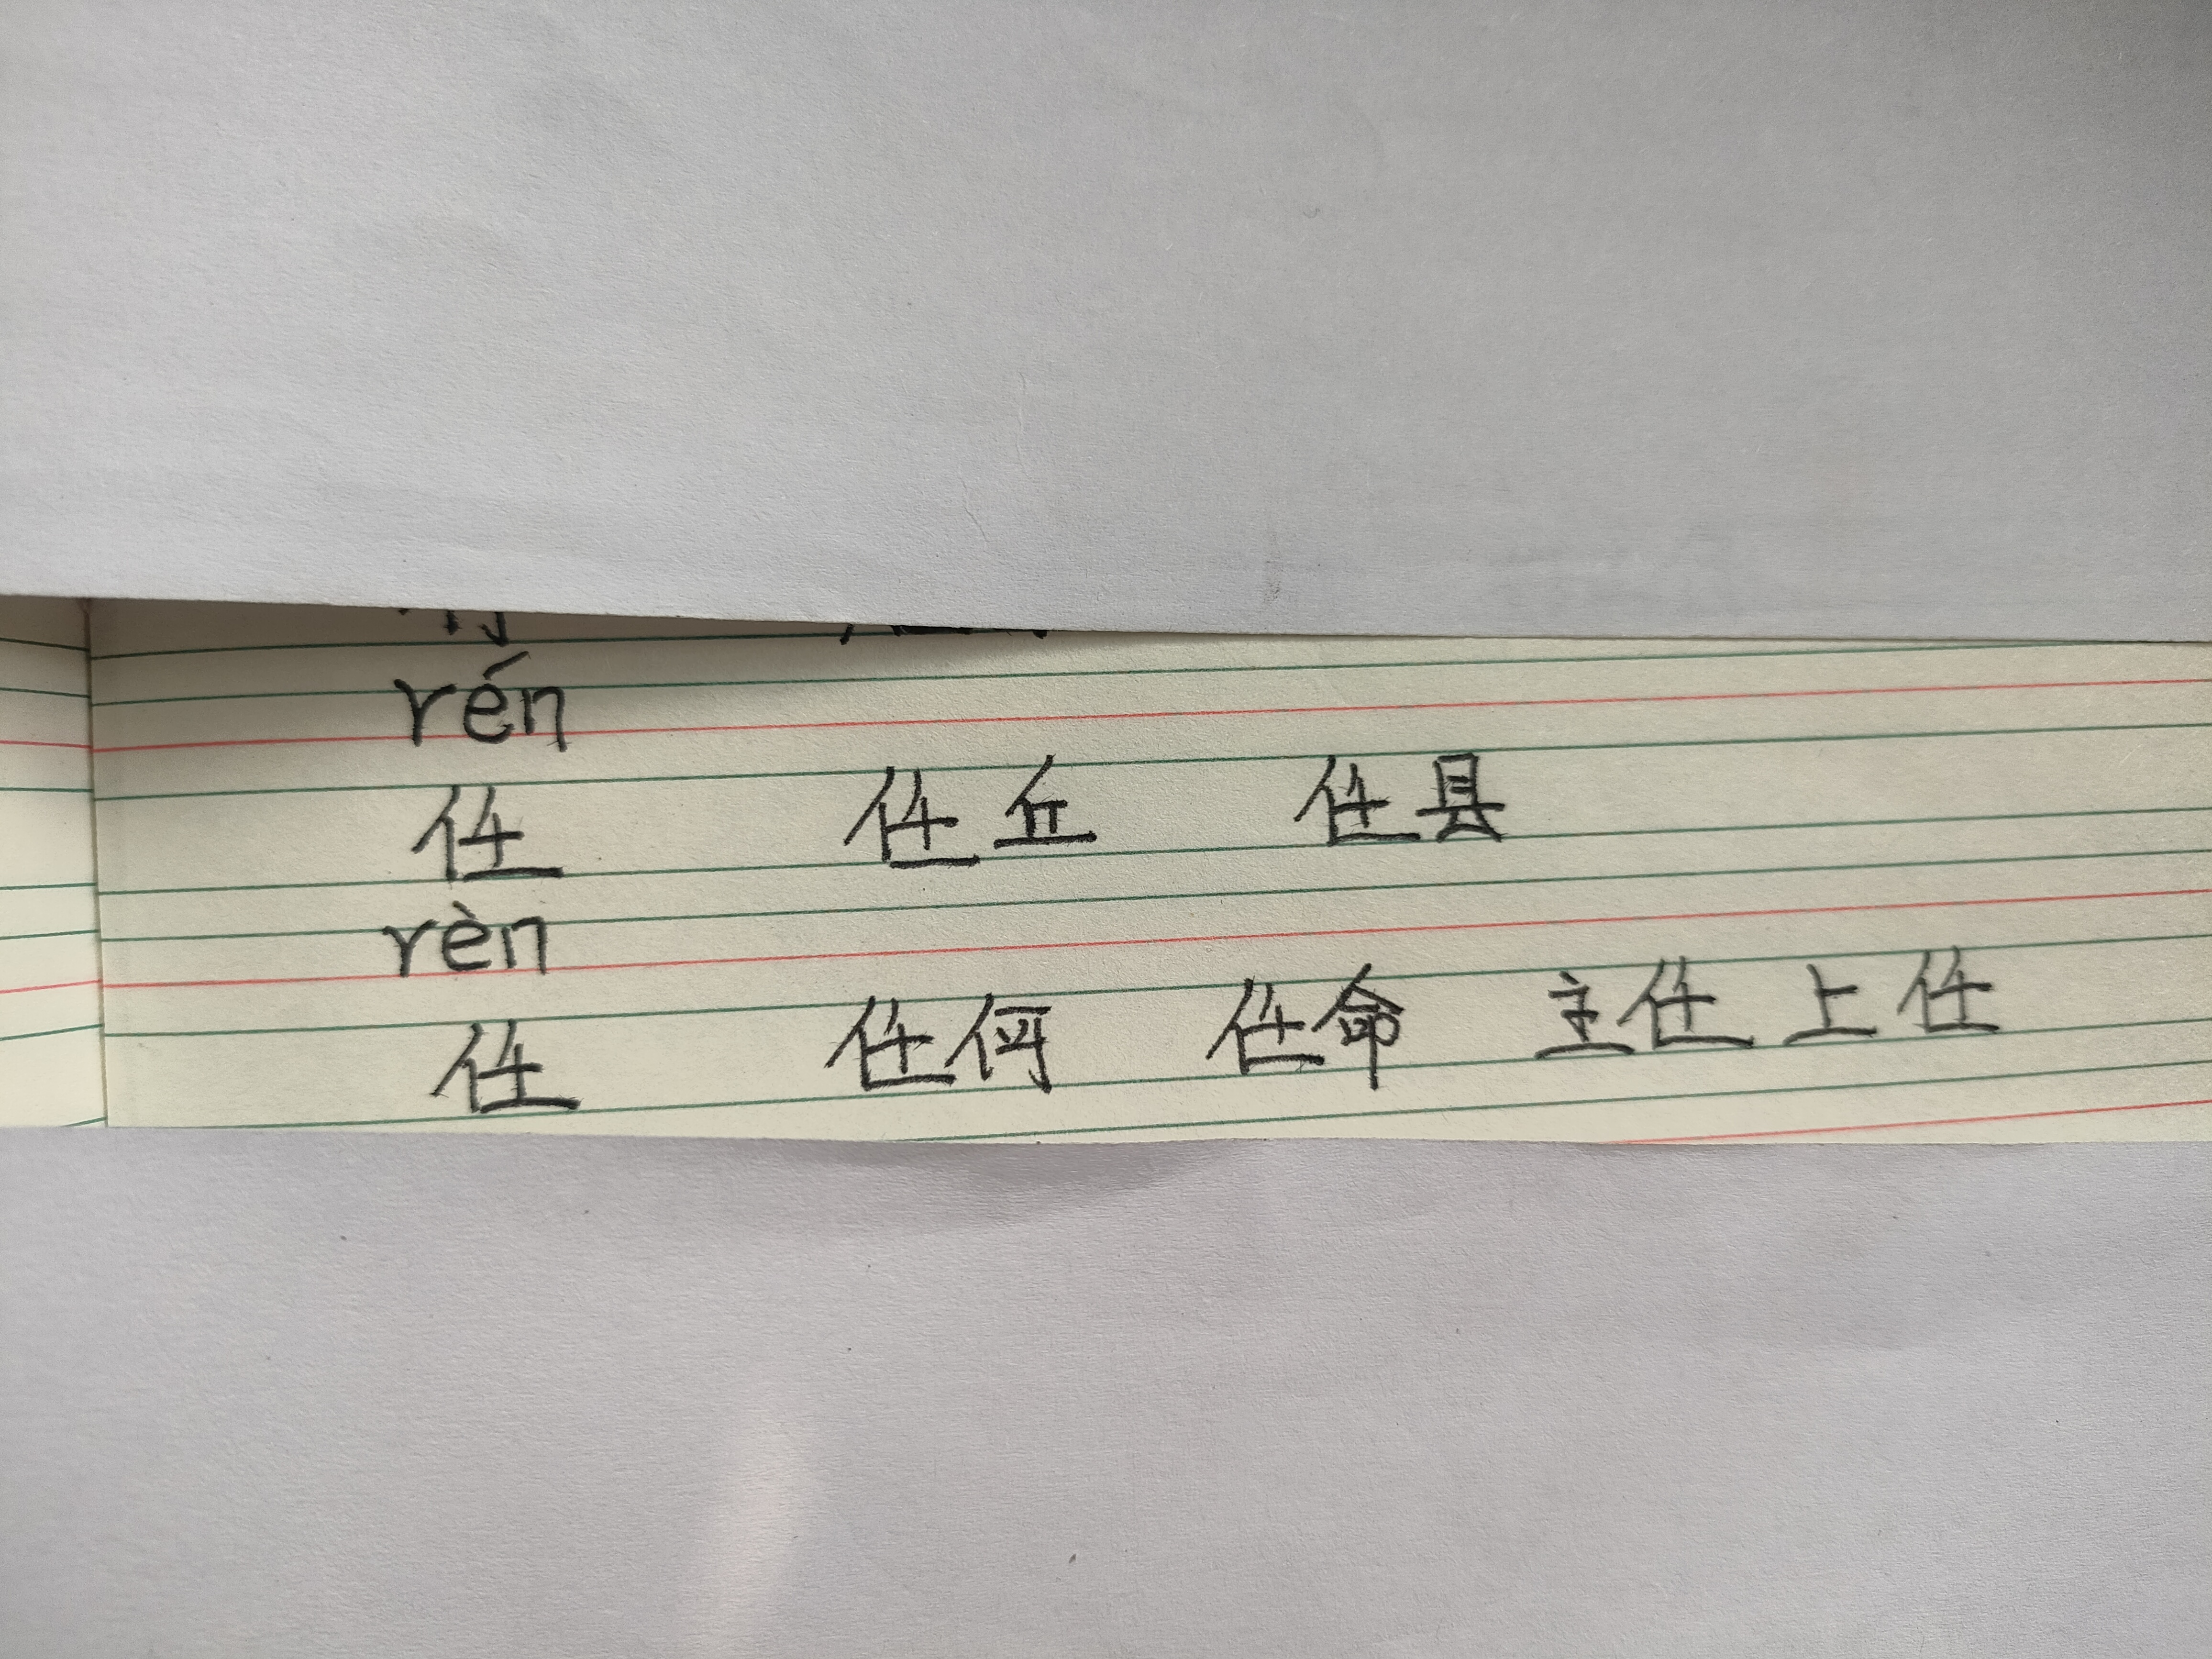 rén
任 任丘 任县
rèn
任 任何 任命 主任 上任